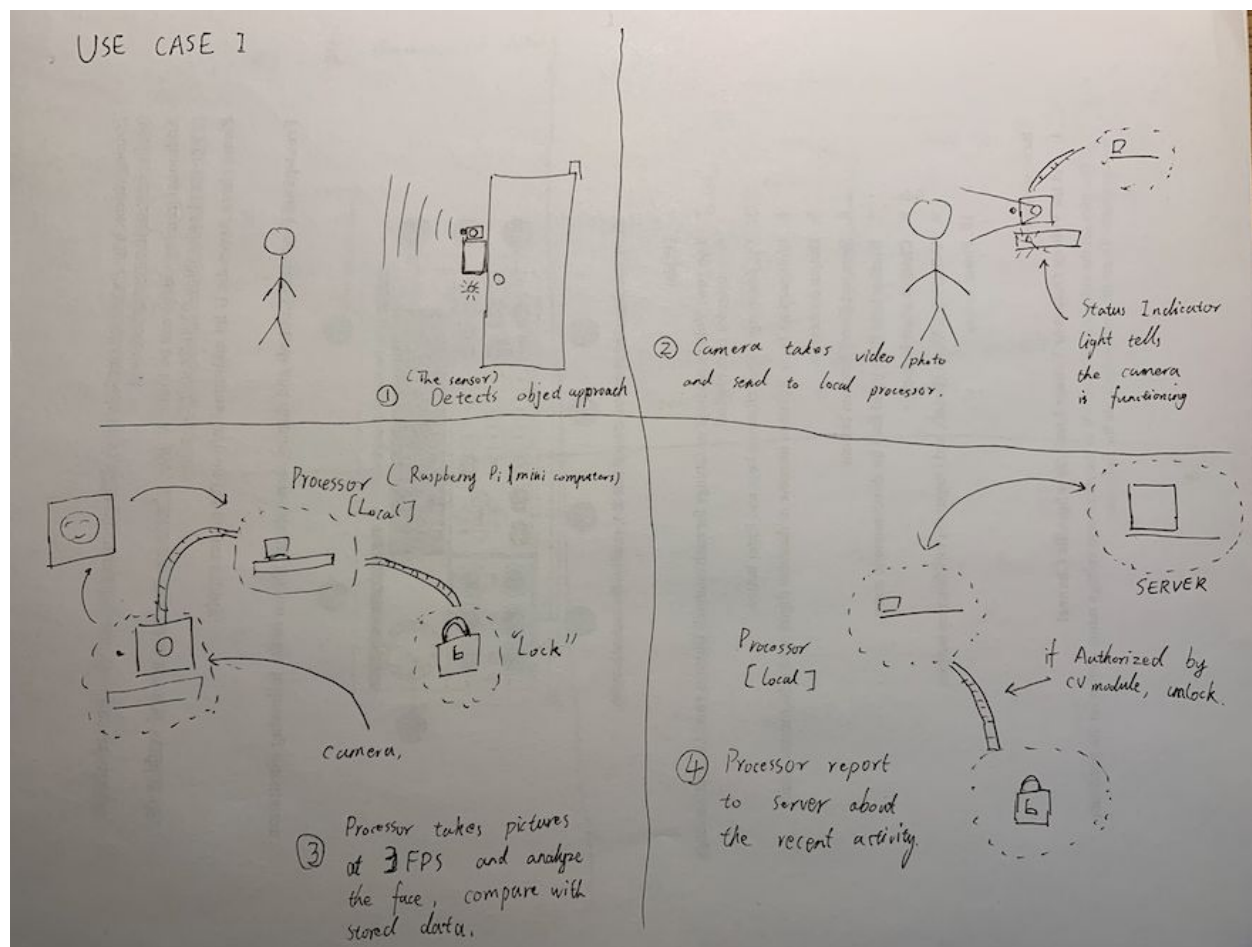 USE CASE 1
(The sensor)
① Detects objed approach
② Camera takes video/photo
and send to local processor.
Status Indicator
light tells
the camera
is functioning
Processor (Raspberry Pi / mini computers)
[Local]
"Lock"
Camera,
③ Processor takes pictures
at 3 FPS and analyze
the face, compare with
stored data.
SERVER
Processor
[Local]
if Authorized by
CV module, unlock.
④ Processor report
to server about
the recent activity.